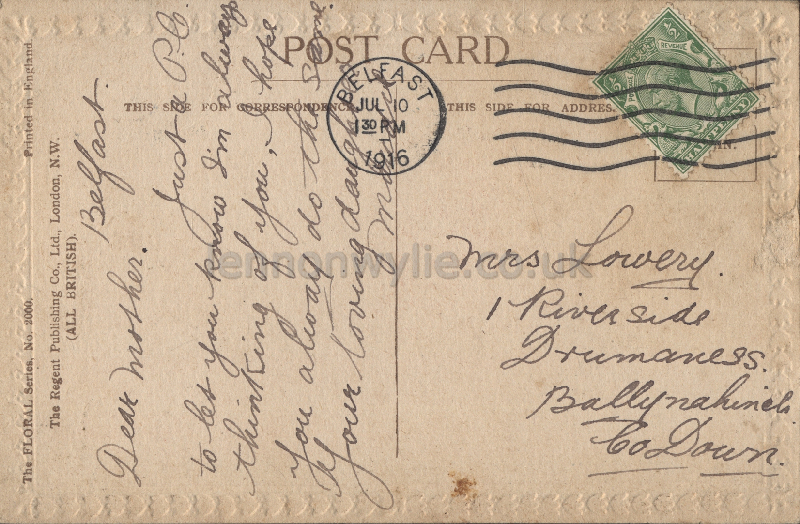 POST CARD
THIS SIDE FOR CORRESPONDENCE
THIS SIDE FOR ADDRES
BELFAST
JUL 10
1 30 PM
1916
Printed in England.
The FLORAL Series, No. 2000.
The Regent Publishing Co., Ltd., London, N.W.
(ALL BRITISH).
Belfast.
Dear Mother. Just a P.C.
to let you know I'm always
thinking of you, I hope
you always do the same
Your loving daughter
Mrs Lowery.
1 Riverside
Drumaness.
Ballynahinch
Co Down.
REVENUE
POSTAGE
HALFPENNY
lennonwylie.co.uk